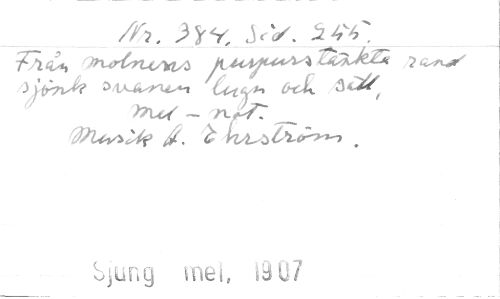 Nr. 384. Sid. 255.
Från molnens purpurstänkta rand
sjönk svanen lugn och säll,
Mel – not.
Musik A. Ehrström.
Sjung mel, 1907